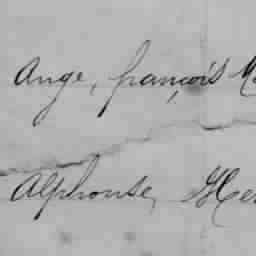 Ange, françois
Alphonse,